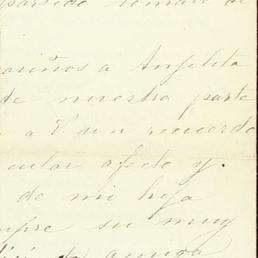 partido tomare de
ariños a Angelita
de nuestra parte
a V un recuerdo
cular afecto y.
de mi hija
mpre su muy
de amiga